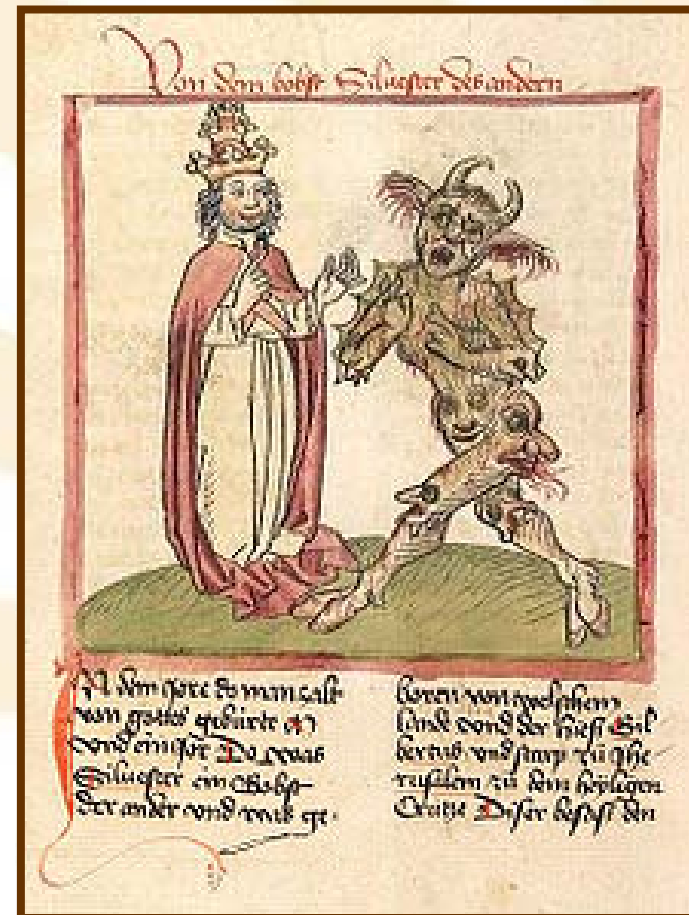 Von dem bobst Siluester des andern
In dem Jore do man zalt
von gottes gebürte M
vnd ein jor Do was
Siluester ein Bobst
der ander vnd was ge-
boren von welschem
lande vnd der hiesß Gil
bertus vnd starp zu Jhe
rusalem zu dem heyligen
Crutze Diser besasß den